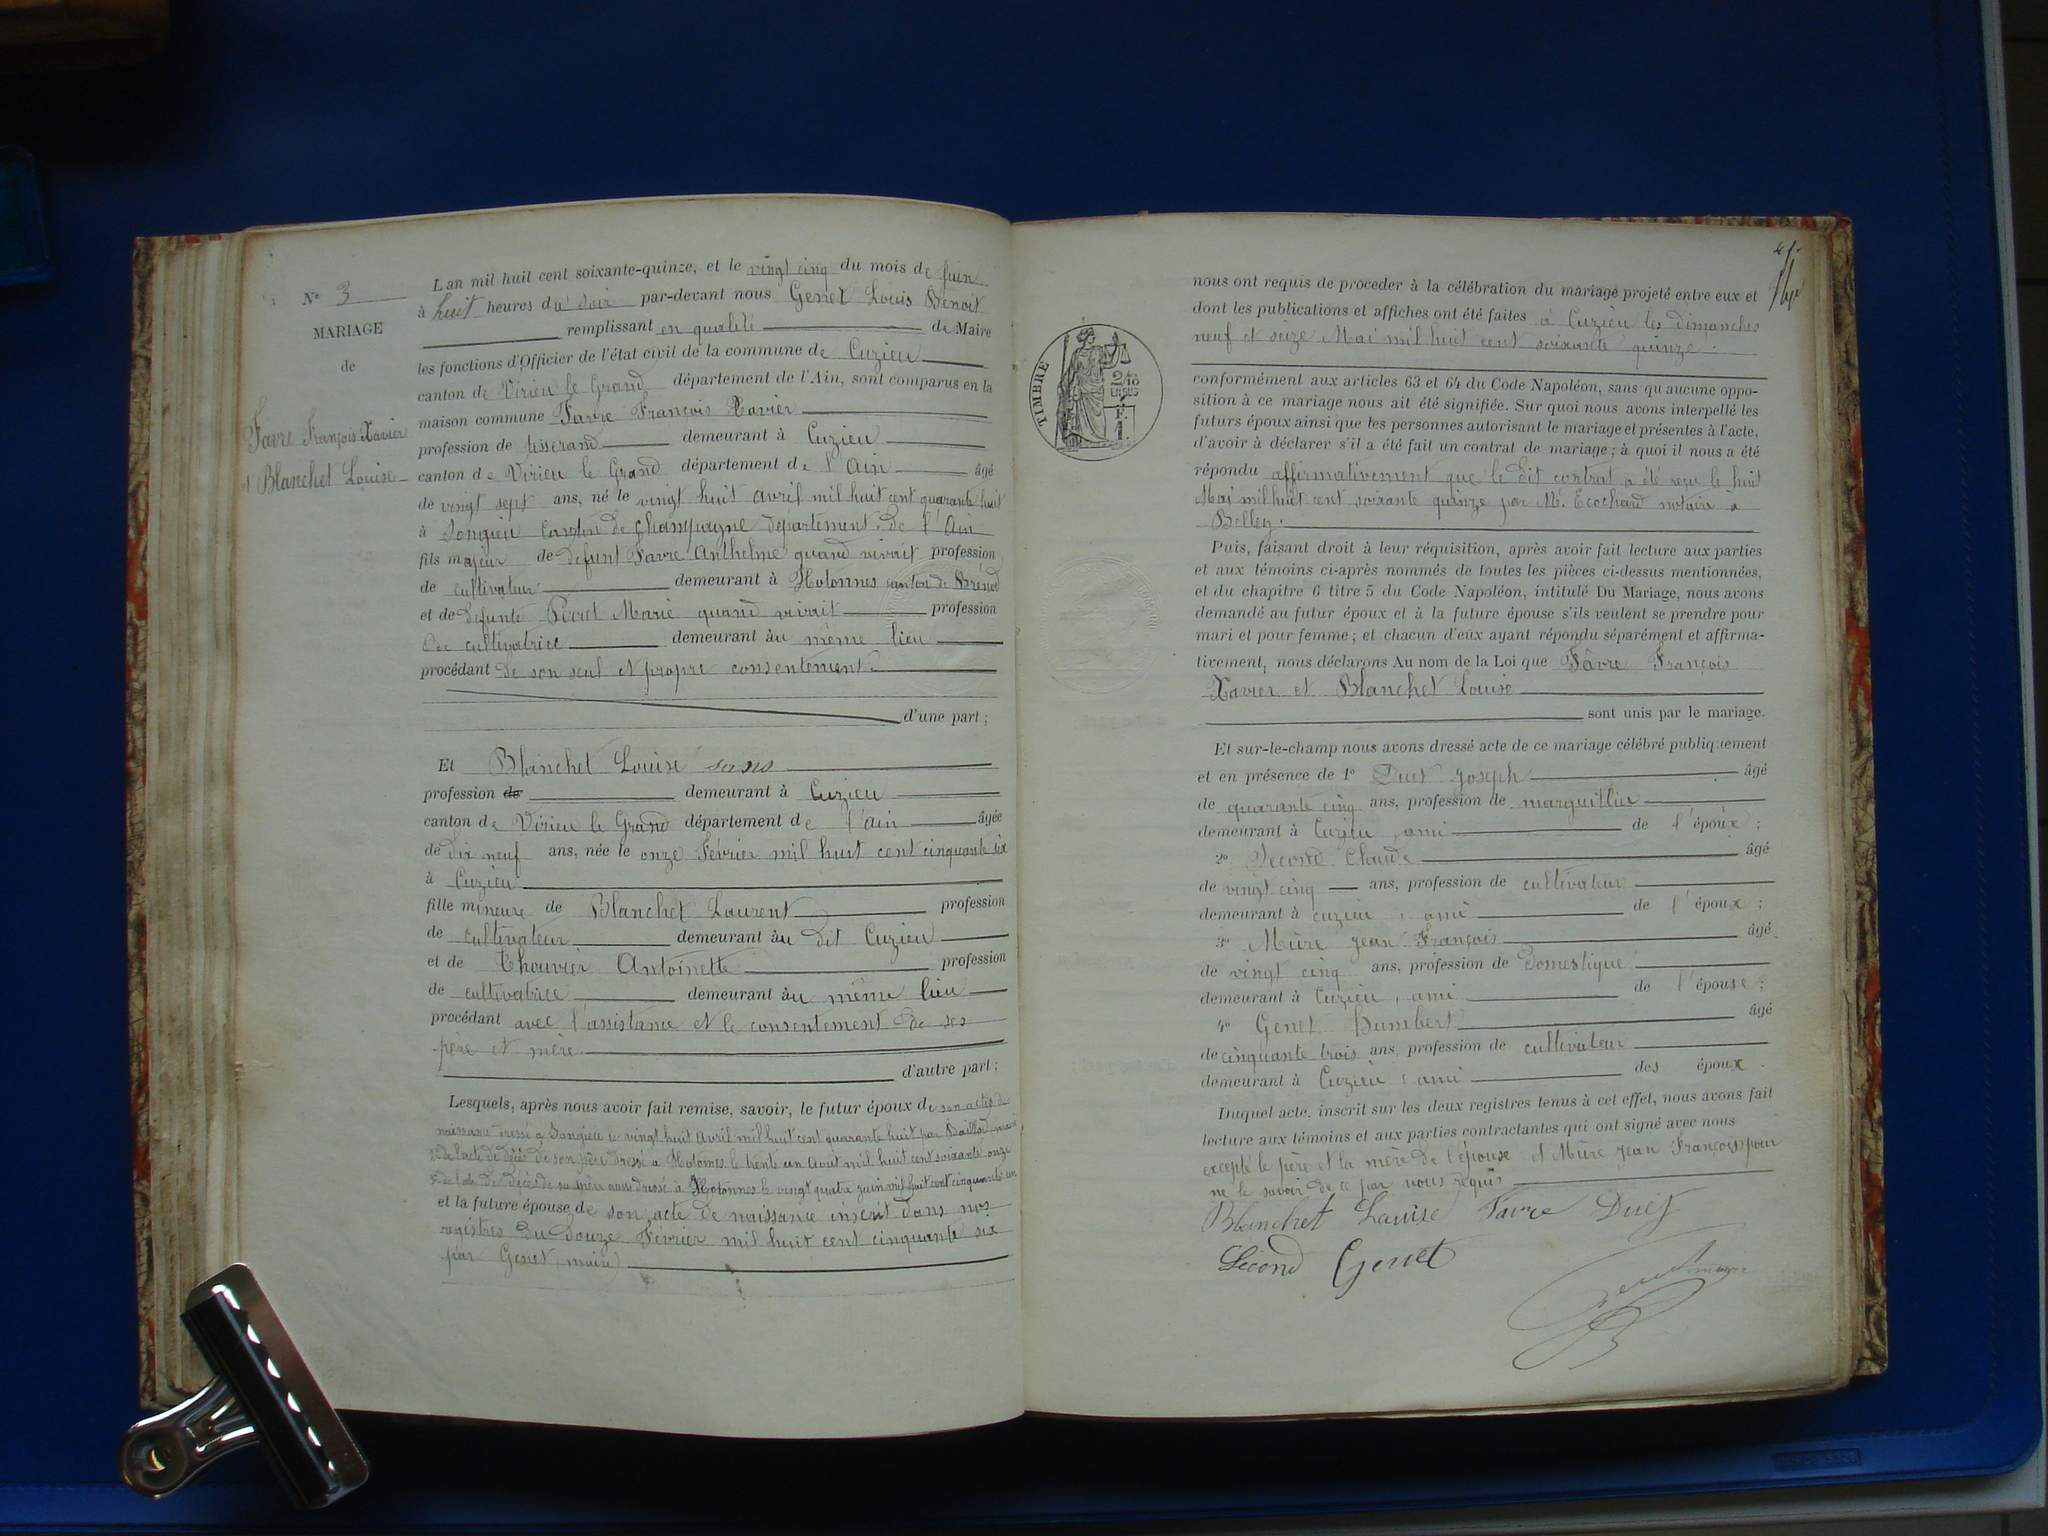 N° 3
MARIAGE
de
Favre François Xavier
et Blanchet Louise
L'an mil huit cent soixante-quinze, et le vingt cinq du mois de Juin
à huit heures du soir par-devant nous Genet Louis Benoit
remplissant en qualité de Maire
les fonctions d'Officier de l'état civil de la commune de Cuzieu
canton de Virieu le Grand département de l'Ain, sont comparus en la
maison commune Favre François Xavier
profession de tisserand demeurant à Cuzieu
canton de Virieu le Grand département de l'Ain âgé
de vingt sept ans, né le vingt huit avril mil huit cent quarante huit
à Songieu canton de Champagne département de l'Ain
fils majeur de défunt Favre Anthelme quand vivait profession
de cultivateur demeurant à Hotonnes canton de Brénod
et de défunte Perret Marie quand vivait profession
de cultivatrice demeurant àu même lieu
procédant de son seul et propre consentement
d'une part ;
Et Blanchet Louise sans
profession de demeurant à Cuzieu
canton de Virieu le Grand département de l'Ain âgée
de dix neuf ans, née le onze Février mil huit cent cinquante six
à Cuzieu
fille mineure de Blanchet Laurent profession
de cultivateur demeurant àu dit Cuzieu
et de Thouvier Antoinette profession
de cultivatrice demeurant àu même lieu
procédant avec l'assistance et le consentement de ses
père et mère
d'autre part ;
Lesquels, après nous avoir fait remise, savoir, le futur époux de son acte de
naissance dressé à Songieu le vingt huit Avril mil huit cent quarante huit par Baillod maire
de l'acte de décès de son père dressé à Hotonnes le trente un Aout mil huit cent soixante onze
de l'acte de décès de sa mère aussi dressé à Hotonnes le vingt quatre juin mil huit cent cinquante un
et la future épouse de son acte de naissance inscrit dans nos
registres du douze Février mil huit cent cinquante six
par Genet maire
41.
TIMBRE
2/10
nous ont requis de proceder à la célébration du mariage projeté entre eux et
dont les publications et affiches ont été faites à Cuzieu les dimanches
neuf et seize Mai mil huit cent soixante quinze.
conformément aux articles 63 et 64 du Code Napoléon, sans qu'aucune oppo-
sition à ce mariage nous ait été signifiée. Sur quoi nous avons interpellé les
futurs époux ainsi que les personnes autorisant le mariage et présentes à l'acte,
d'avoir à déclarer s'il a été fait un contrat de mariage ; à quoi il nous a été
répondu affirmativement que le dit contrat a été reçu le huit
Mai mil huit cent soixante quinze par Me. Ecochard notaire à
Belley.
Puis, faisant droit à leur réquisition, après avoir fait lecture aux parties
et aux témoins ci-après nommés de toutes les pièces ci-dessus mentionnées,
et du chapitre 6 titre 5 du Code Napoléon, intitulé Du Mariage, nous avons
demandé au futur époux et à la future épouse s'ils veulent se prendre pour
mari et pour femme ; et chacun d'eux ayant répondu séparément et affirma-
tivement, nous déclarons Au nom de la Loi que Fâvre François
Xavier et Blanchet Louise
sont unis par le mariage.
Et sur-le-champ nous avons dressé acte de ce mariage célébré publiquement
et en présence de 1° Duet Joseph âgé
de quarante cinq ans, profession de marguillier
demeurant à Cuzieu, ami de l'époux ;
2° Second Claude âgé
de vingt cinq ans, profession de cultivateur
demeurant à cuzieu, ami de l'époux ;
3° Mùre Jean François âgé
de vingt cinq ans, profession de domestique
demeurant à Cuzieu, ami de l'épouse ;
4° Genet Humbert âgé
de cinquante trois ans, profession de cultivateur
demeurant à Cuzieu, ami des époux.
Duquel acte, inscrit sur les deux registres tenus à cet effet, nous avons fait
lecture aux témoins et aux parties contractantes qui ont signé avec nous
excepté le père et la mère de l'épouse et Mùre Jean François pour
ne le savoir de ce par nous requis
Blanchet Louise Favre Duet
Second Genet
Genet maire